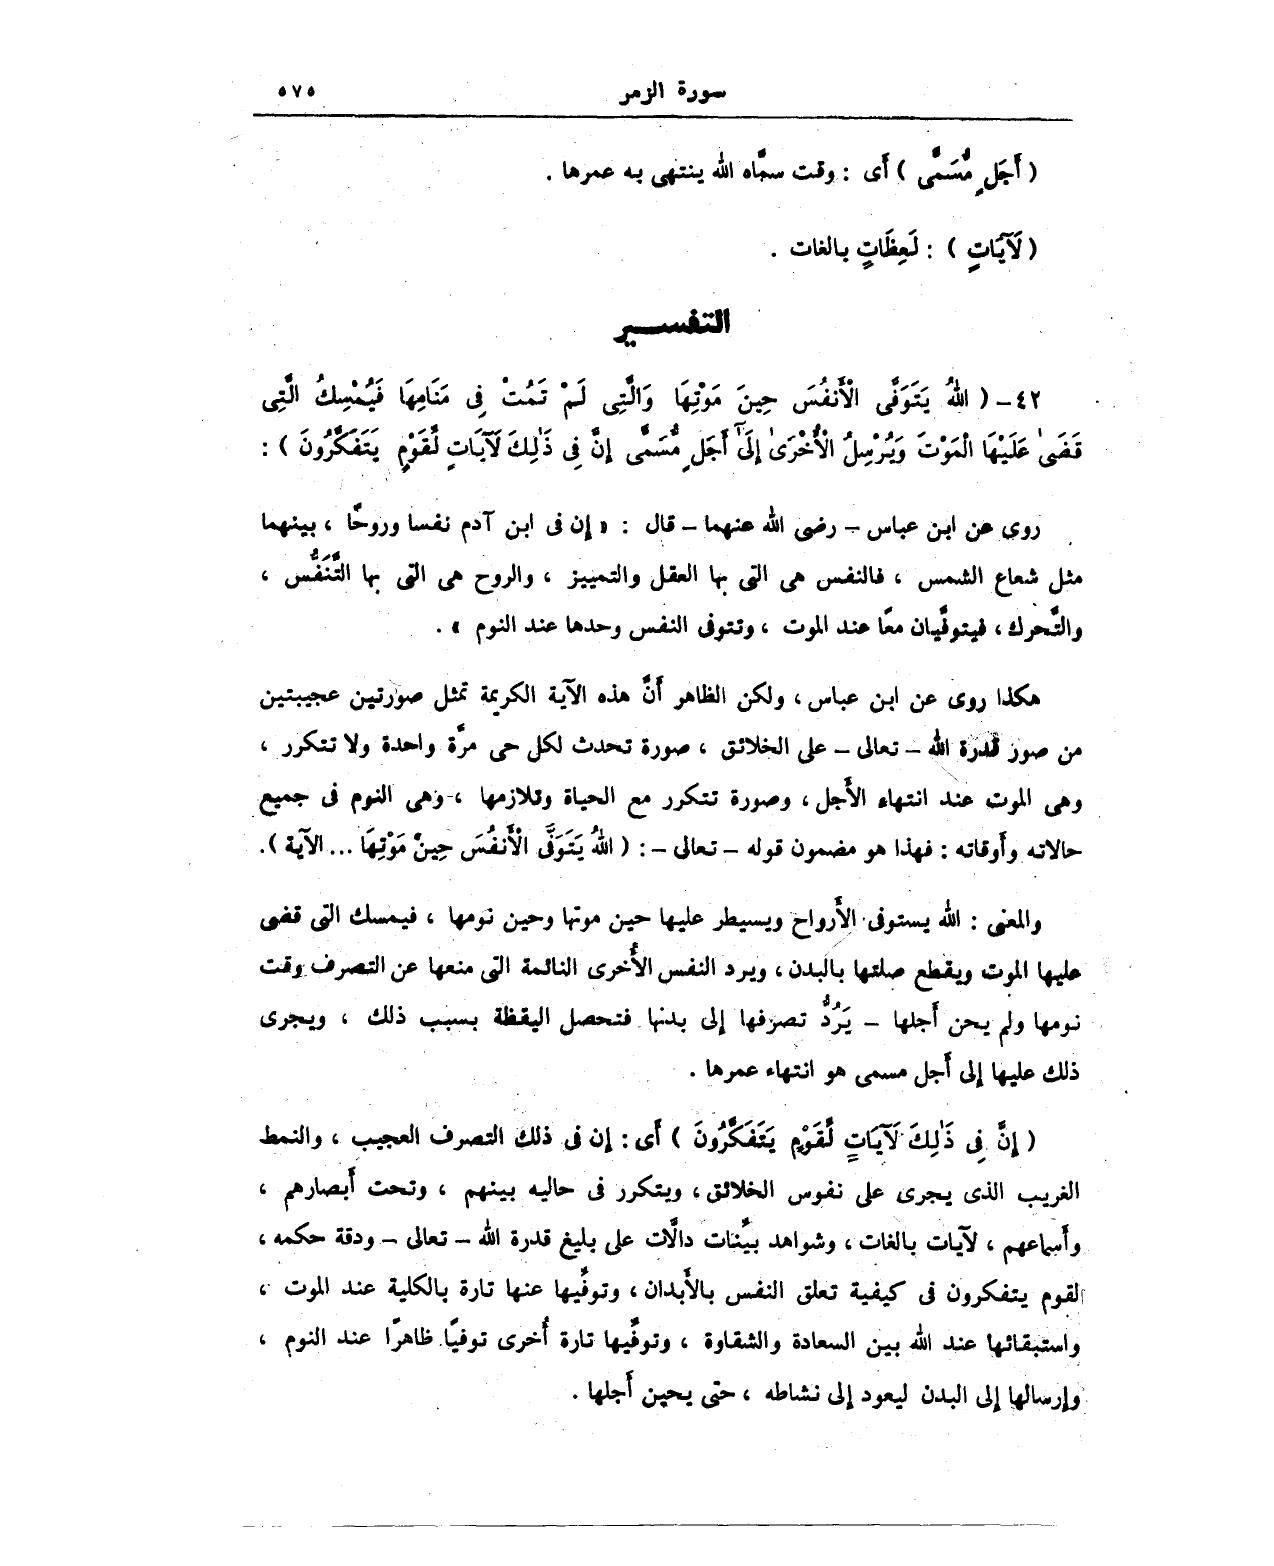 سورة الزمر ٥٧٥
( أَجَلٍ مُّسَمًّى ) أَى : وقت سمَّاه الله ينتهى به عمرها .
( لَآيَاتٍ ) : لَعِظَاتٍ بالغات .
التفسير
٤٢- ( اللهُ يَتَوَفَّى الْأَنفُسَ حِينَ مَوْتِهَا وَالَّتِى لَمْ تَمُتْ فِى مَنَامِهَا فَيُمْسِكُ الَّتِى
قَضَىٰ عَلَيْهَا الْمَوْتَ وَيُرْسِلُ الْأُخْرَىٰ إِلَىٰٓ أَجَلٍ مُّسَمًّى إِنَّ فِى ذَٰلِكَ لَآيَاتٍ لِّقَوْمٍ يَتَفَكَّرُونَ ) :
روى عن ابن عباس – رضى الله عنهما – قال : « إن فى ابن آدم نفسا وروحًا ، بينهما
مثل شعاع الشمس ، فالنفس هى التى بها العقل والتمييز ، والروح هى التى بها التَّنَفُّس ،
والتَّحرك ، فيتوفَّيان معًا عند الموت ، وتتوفى النفس وحدها عند النوم » .
هكذا روى عن ابن عباس ، ولكن الظاهر أَنَّ هذه الآية الكريمة تمثل صورتين عجيبتين
من صور قدرة الله – تعالى – على الخلائق ، صورة تحدث لكل حى مرَّة واحدة ولا تتكرر ،
وهى الموت عند انتهاء الأَجل ، وصورة تتكرر مع الحياة وتلازمها ، وهى النوم فى جميع
حالاته وأَوقاته : فهذا هو مضمون قوله – تعالى – : ( اللهُ يَتَوَفَّى الْأَنفُسَ حِينَ مَوْتِهَا ... الآية ) .
والمعنى : الله يستوفى الأَرواح ويسيطر عليها حين موتها وحين نومها ، فيمسك التى قضى
عليها الموت ويقطع صلتها بالبدن ، ويرد النفس الأُخرى النائمة التى منعها عن التصرف وقت
نومها ولم يحن أَجلها – يَرُدُّ تصرفها إلى بدنها فتحصل اليقظة بسبب ذلك ، ويجرى
ذلك عليها إلى أَجل مسمى هو انتهاء عمرها .
( إِنَّ فِى ذَٰلِكَ لَآيَاتٍ لِّقَوْمٍ يَتَفَكَّرُونَ ) أَى : إن فى ذلك التصرف العجيب ، والنمط
الغريب الذى يجرى على نفوس الخلائق ، ويتكرر فى حاليه بينهم ، وتحت أَبصارهم ،
وأَسماعهم ، لآيات بالغات ، وشواهد بيِّنات دالَّات على بليغ قدرة الله – تعالى – ودقة حكمه ،
لقوم يتفكرون فى كيفية تعلق النفس بالأَبدان ، وتوفِّيها عنها تارة بالكلية عند الموت ،
واستبقائها عند الله بين السعادة والشقاوة ، وتوفِّيها تارة أُخرى توفيًا ظاهرًا عند النوم ،
وإرسالها إلى البدن ليعود إلى نشاطه ، حتى يحين أَجلها .